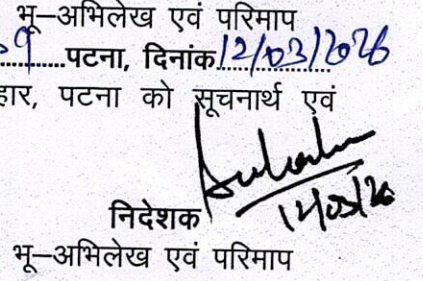 भू–अभिलेख एवं परिमाप
9......पटना, दिनांक 12/03/2026
हार, पटना को सूचनार्थ एवं
12/03/26
निदेशक
भू–अभिलेख एवं परिमाप